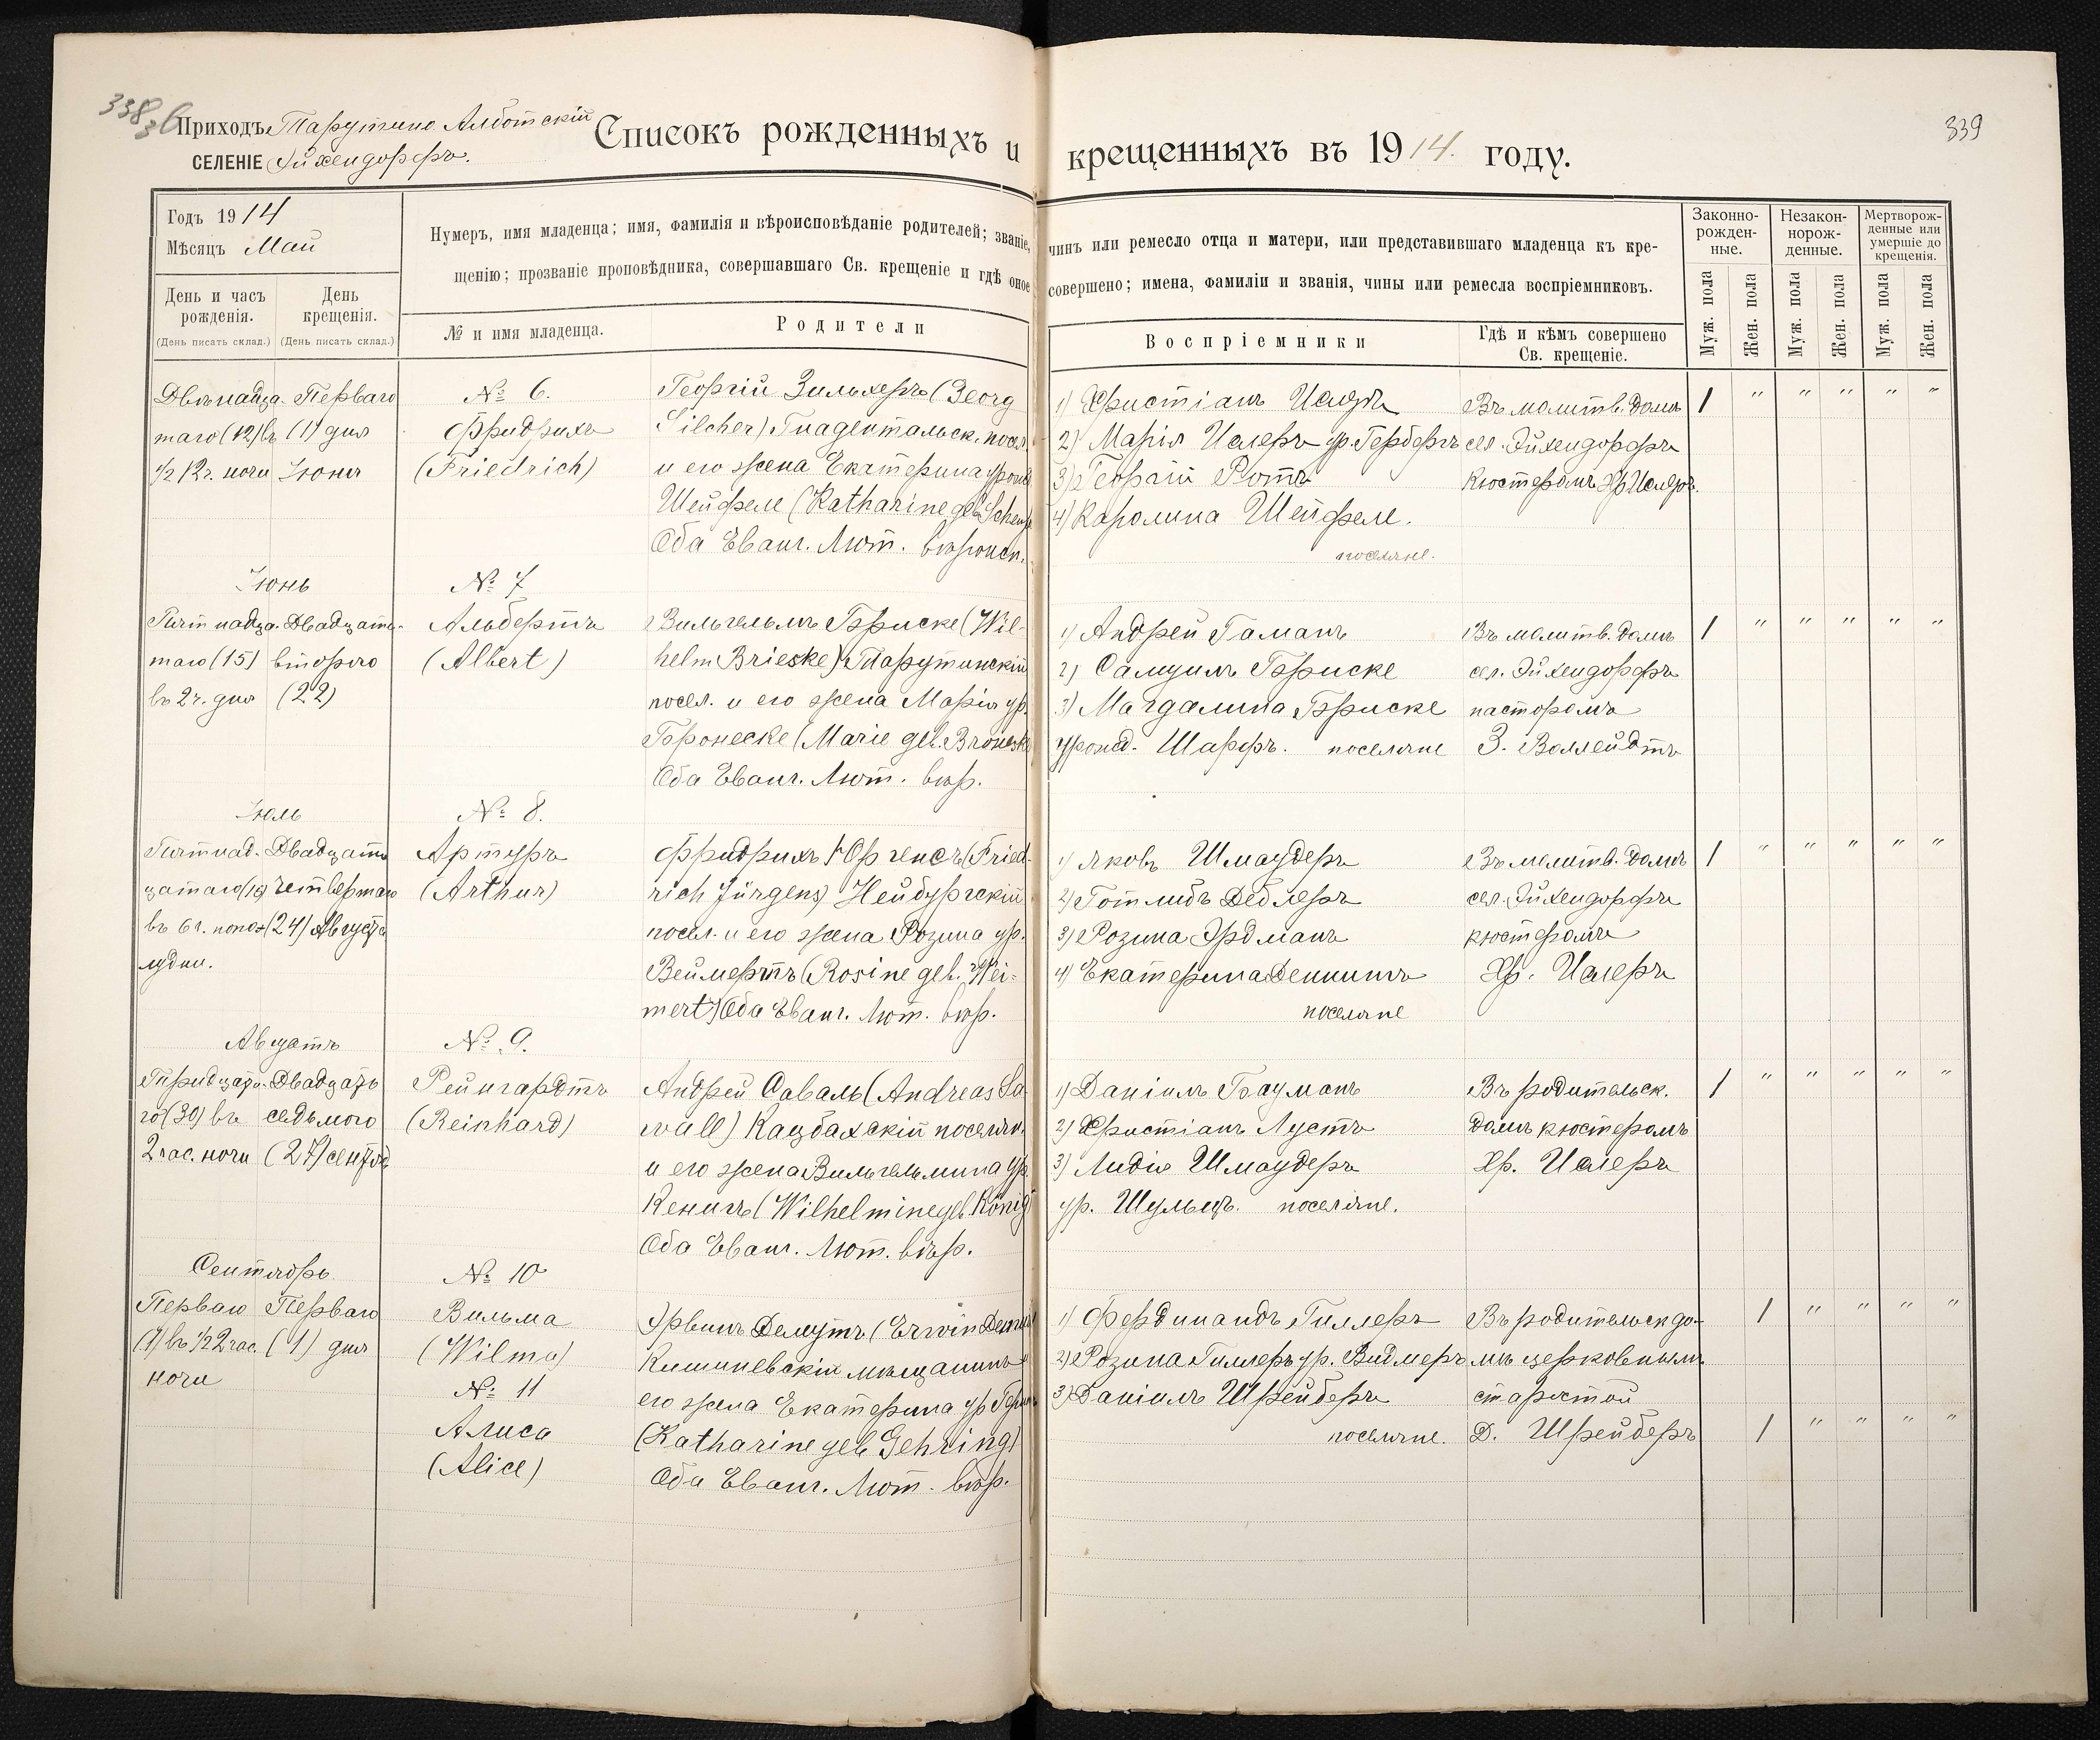 338
36
339
Приходъ Тарутино Алботскій
СЕЛЕНІЕ Эйхендорфъ.
Списокъ рожденныхъ и крещенныхъ въ 1914. году.
Годъ 1914
Мѣсяцъ Май
День и часъ рожденія.
(День писать склад.)
День крещенія.
(День писать склад.)
Нумеръ, имя младенца; имя, фамилія и вѣроисповѣданіе родителей; званіе, чинъ или ремесло отца и матери, или представившаго младенца къ кре-
щенію; прозваніе проповѣдника, совершавшаго Св. крещеніе и гдѣ оное совершено; имена, фамиліи и званія, чины или ремесла воспріемниковъ.
№ и имя младенца.
Родители
Воспріемники
Гдѣ и кѣмъ совершено
Св. крещеніе.
Законно-
рожден-
ные.
Незакон-
норож-
денные.
Мертворож-
денные или
умершіе до
крещенія.
Муж. пола
Жен. пола
Муж. пола
Жен. пола
Муж. пола
Жен. пола
Двѣнадца-
таго (12) въ
½ 12 г. ночи
Перваго
(1) дня
Іюня
№ 6.
Фридрихъ
(Friedrich)
Георгій Зильхеръ (Georg
Silcher) Гнадентальск. посел.
и его жена Екатерина урожд.
Шейфеле (Katharine geb.
Оба Еванг. Лют. вѣроисп.
1) Христіанъ Исаеръ
2) Марія Исаеръ ур. Герберъ
3) Георгій Ротъ
4) Каролина Шейфеле.
поселяне.
Въ молитв. домѣ
сел. Эйхендорфъ
кюстеромъ Хр. Исаеръ.
1 " " " " "
Іюнь
Пятнадца-
таго (15)
въ 2 ч. дня
Двадцать-
второго
(22)
№ 7
Альбертъ
(Albert)
Вильгельмъ Бриске (Wil-
helm Brieske) Тарутинскій
посел. и его жена Марія ур.
Бронеске (Marie geb. Broneske
Оба Еванг. Лют. вѣр.
1) Андрей Гаманъ
2) Самуилъ Бриске
3) Магдалина Бриске
урожд. Шарфъ. поселяне
Въ молитв. домѣ
сел. Эйхендорфъ
пасторомъ
З. Валлейдтъ
1 " " " " "
Іюль
Пятнад-
цатаго
въ 6 г. попо-
лудни.
Двадцать
четвертаго
(24) Августа
№ 8.
Артуръ
(Arthur)
Фридрихъ Юргенсъ (Fried-
rich Jürgens) Нейбургскій
посел. и его жена Розина ур.
Веймертъ (Rosine geb. Wei-
mert) Оба Еванг. Лют. вѣр.
1) Яковъ Шмаудеръ
2) Готлибъ Деблеръ
3) Розина Эрдманъ
4) Екатерина Деннингъ
поселяне
Въ молитв. домѣ
сел. Эйхендорфъ
кюстеромъ
Хр. Исаеръ
1 " " " " "
Августъ
Тридцата-
го (30) въ
2 час. ночи
Двадцать
седьмого
(27) сентябр.
№ 9.
Рейнгардтъ
(Reinhard)
Андрей Саваль (Andreas Sa-
wall) Кацбахскій поселян.
и его жена Вильгельмина ур.
Кенигъ (Wilhelmine geb. König)
Оба Еванг. Лют. вѣр.
1) Даніилъ Бауманъ
2) Христіанъ Лустъ
3) Лидія Шмаудеръ
ур. Шульцъ. поселяне.
Въ родительск.
домѣ кюстеромъ
Хр. Исаеръ
1 " " " " "
Сентябрь
Перваго
(1) въ ½ 2 час.
ночи
Перваго
(1) дня
№ 10
Вильма
(Wilma)
№ 11
Алиса
(Alice)
Эрвинъ Демутъ (Erwin Demuth
Кишиневскій мѣщанинъ
его жена Екатерина ур.
(Katharine geb. Gehring)
Оба Еванг. Лют. вѣр.
1) Фердинандъ Гиллеръ
2) Розина Гиллеръ ур. Видмеръ
3) Даніилъ Шрейберъ
поселяне.
Въ родительск. до-
мѣ церковнымъ
старостой
Д. Шрейберъ
1 " " " "
1 " " " "